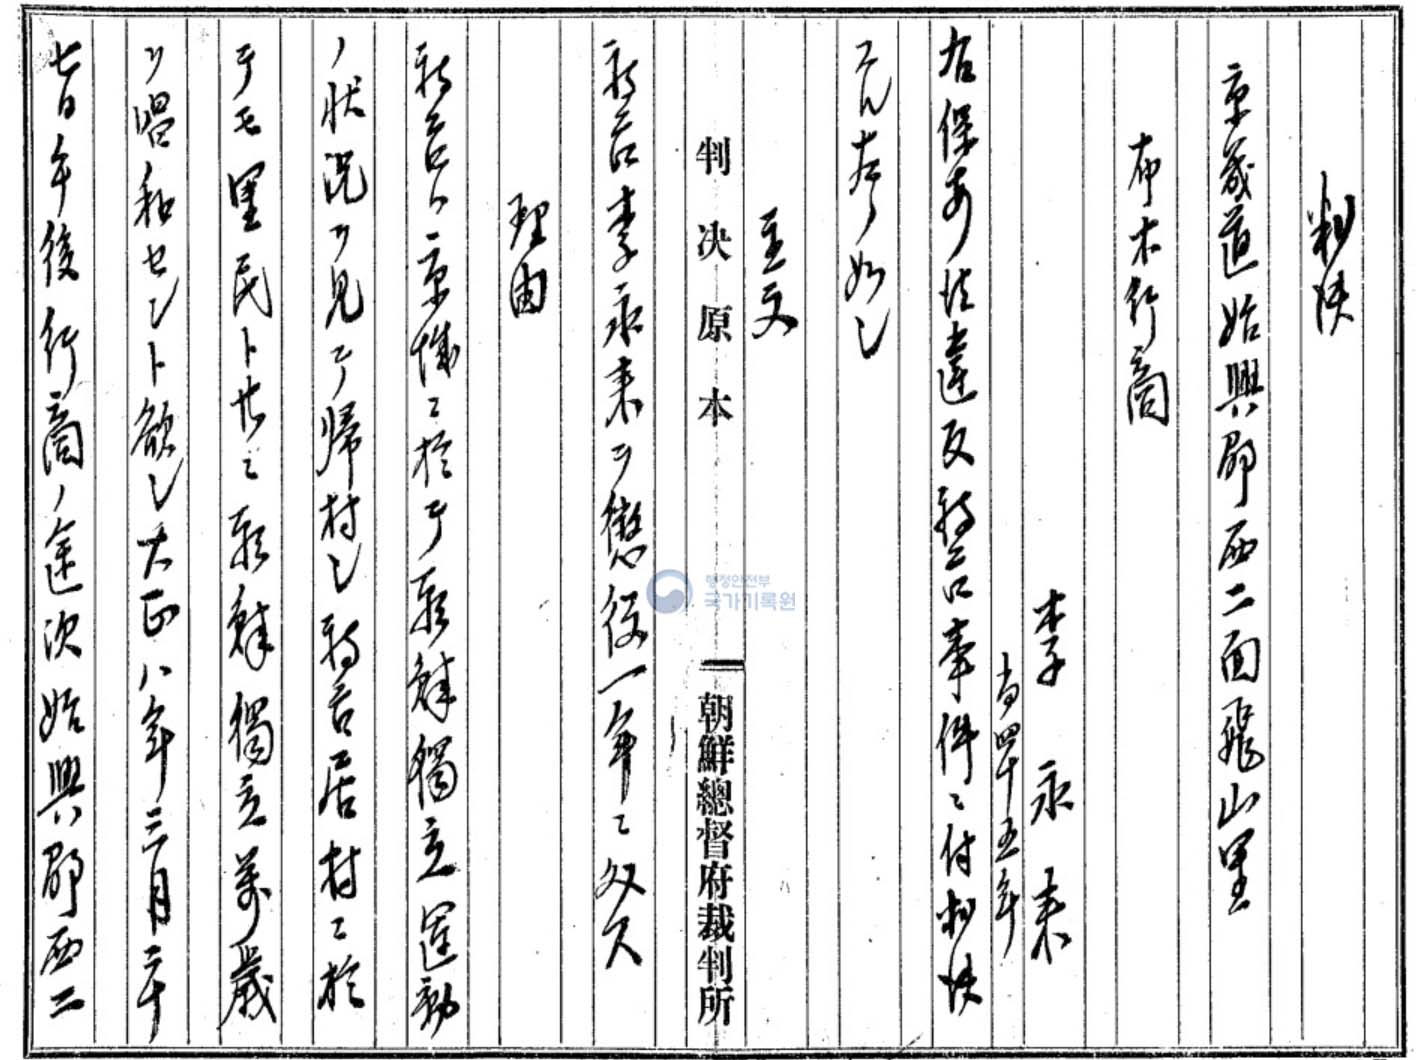 判決
京畿道始興郡西二面飛山里
布木行商
李永来
当四十五年
右保安法違反被告事件ニ付判決
スル左ノ如シ
主文
判決原本
朝鮮總督府裁判所
行정안전부
국가기록원
被告李永来ヲ懲役一年ニ処ス
理由
被告ハ京城ニ於テ朝鮮獨立運動
ノ状況ヲ見テ帰村シ被告居村ニ於
テモ里民ト共ニ朝鮮獨立萬歳
ヲ唱和セント欲シ大正八年三月二十
七日午後行商ノ途次始興郡西二